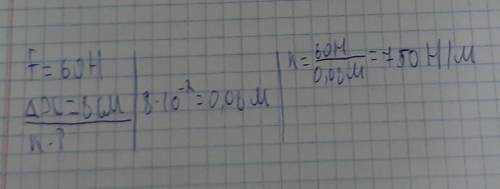 F = 60 Н
Δx = 8 см | 8 · 10⁻² = 0,08 м
k - ?
k = 60 Н / 0,08 м = 750 Н/м